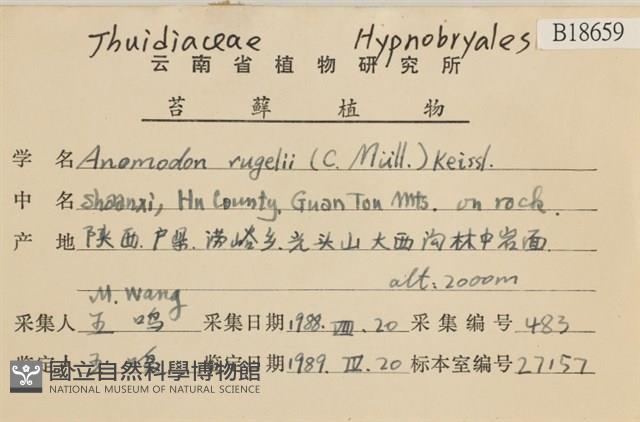 B18659
Thuidiaceae Hypnobryales
云南省植物研究所
苔藓植物
学名 Anomodon rugelii (C. Müll.) Keissl.
中名 Shaanxi, Hu County, Guan Tou Mts. on rock.
产地 陕西.户县.涝峪乡.光头山大西沟林中岩面
alt: 2000m
M. Wang
采集人 王鸣 采集日期 1988.VIII.20 采集编号 483
鉴定人 王鸣 鉴定日期 1989.IV.20 标本室编号 27157
國立自然科學博物館
NATIONAL MUSEUM OF NATURAL SCIENCE